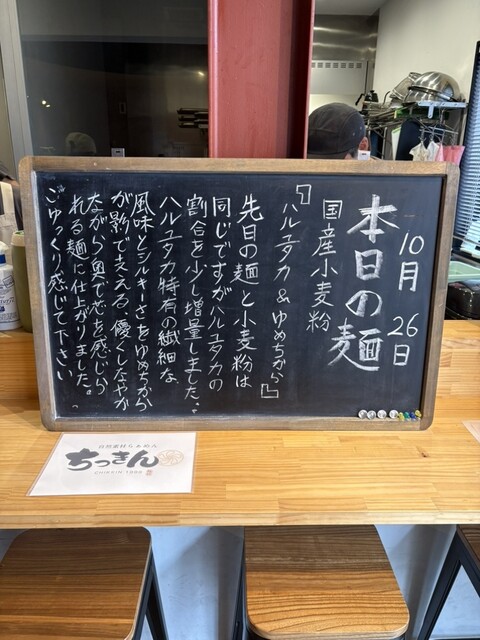 10月 26日
本日の麺
国産小麦粉
『ハルユタカ&ゆめちから』
先日の麺と小麦粉は
同じですがハルユタカの
割合を少し増量しました。
ハルユタカ特有の繊細な
風味とシルキーさをゆめちから
が影で支える、優しくしなやか
ながらも奥で芯を感じら
れる麺に仕上がりました。
ごゆっくり感じて下さい。
自然素材らぁめん
ちっきん
CHIKKIN 1998